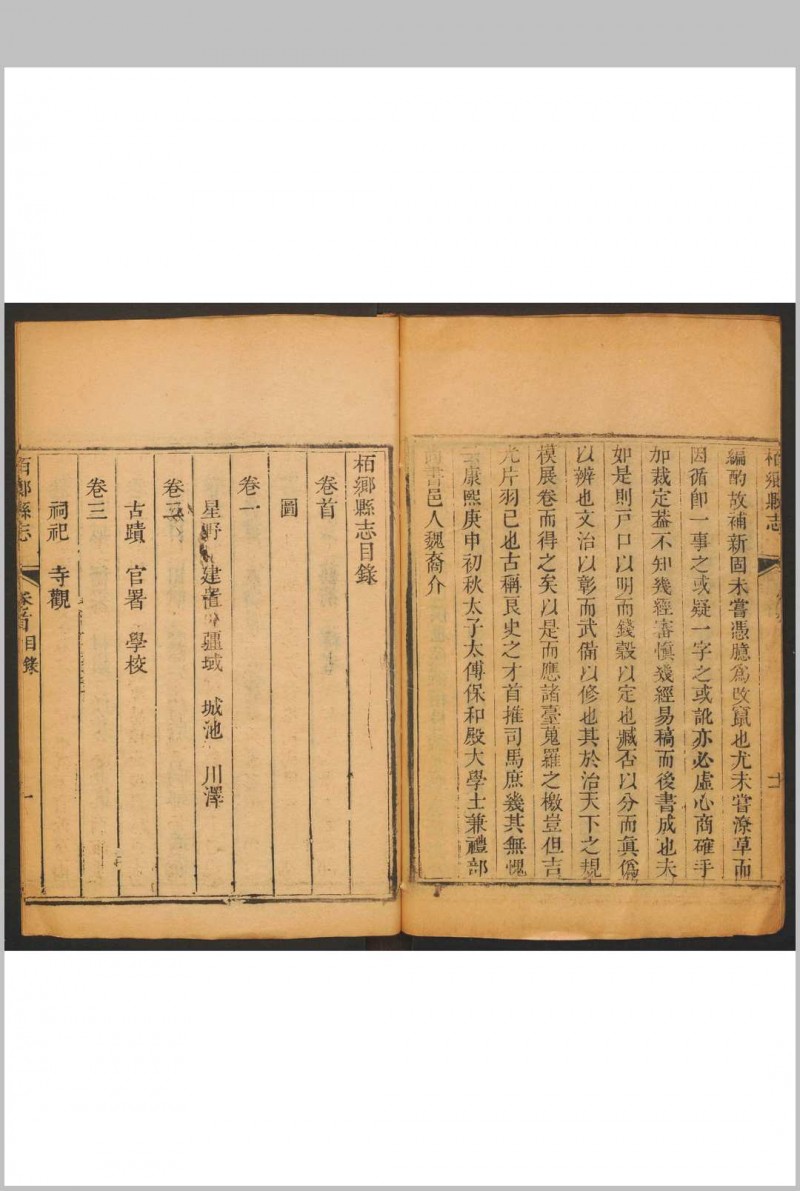 栢鄉縣志
編酌故補新固未嘗憑臆爲改竄也尤未嘗潦草而
因循卽一事之或疑一字之或訛亦必虛心商確手
加裁定葢不知幾經審愼幾經易稿而後書成也夫
如是則戸口以明而錢穀以定也臧否以分而眞僞
以辨也文治以彰而武備以修也其於治天下之規
模展卷而得之矣以是而應諸臺蒐羅之檄豈但吉
光片羽已也古稱良史之才首推司馬庶幾其無愧
康熙庚申初秋太子太傅保和殿大學士兼禮部
尚書邑人魏裔介
栢鄉縣志目錄
卷首
圖
卷一
星野 建置 疆域 城池 川澤
卷二
古蹟 官署 學校
卷三
祠祀 寺觀
栢鄉縣志 卷首 目錄 一